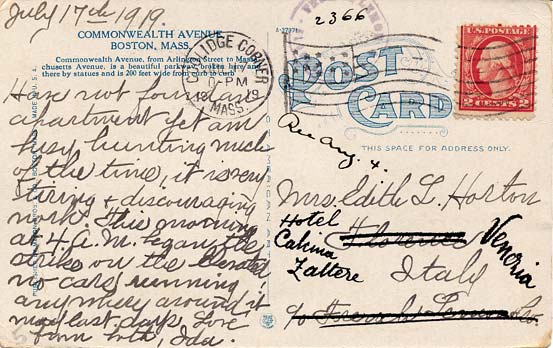 July 17th 1919.
COMMONWEALTH AVENUE,
BOSTON, MASS.
Commonwealth Avenue, from Arlington Street to Massa-
chusetts Avenue, is a beautiful parkway broken here and
there by statues and is 200 feet wide from curb to curb
Have not found an
apartment yet am
busy hunting much
of the time, it is very
tiring & discouraging
work. This morning
at 4 A.M. began the
strike on the Elevated
no cars running
any where around, it
may last days. Love
from both, Ida.
COOLIDGE CORNER
-PM
19
MASS.
2366
A-37971
U.S. POSTAGE
2 CENTS 2
POST
CARD
THIS SPACE FOR ADDRESS ONLY.
Rec Aug. 4.
Mrs. Edith L. Horton
Hotel
Florence
Calcina
Zattere
Venezia
Italy
c/o French Lemon & Co.